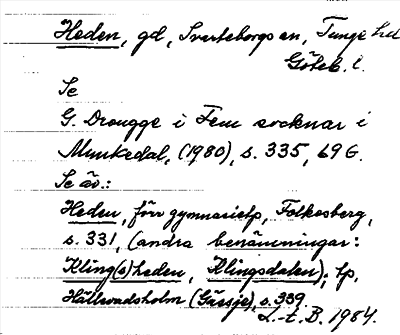 Heden, gd, Svarteborgs sn, Tunge hd
Göteb. l.
Se
G. Drougge i Fem socknar i
Munkedal, (1980), s. 335, 696.
Se äv.:
Heden, förr gymnastiktp, Folkesberg,
s. 331, (andra benämningar:
Kling(s)heden, Klingsdalen); tp,
Hällevadsholm (Gässje), s. 339.
L.-t. B. 1984.